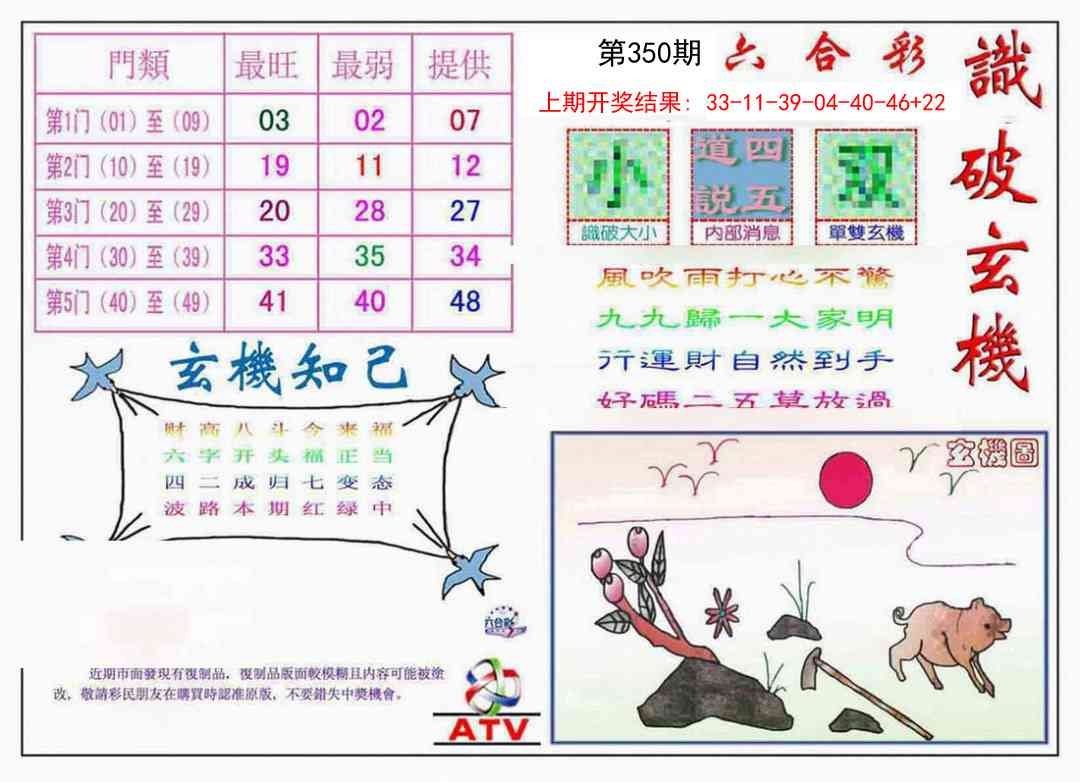 門類 最旺 最弱 提供
第1门（01）至（09） 03 02 07
第2门（10）至（19） 19 11 12
第3门（20）至（29） 20 28 27
第4门（30）至（39） 33 35 34
第5门（40）至（49） 41 40 48
第350期 六合彩
上期开奖结果：33-11-39-04-40-46+22
識破玄機
小
識破大小
道四
説五
内部消息
双
單雙玄機
風吹雨打心不驚
九九歸一大家明
行運財自然到手
好碼二五莫放過
玄機知己
财高八斗今来福
六字开头福正当
四二成归七变态
波路本期红绿中
玄機圖
六合彩
近期市面發現有復制品，復制品版面較模糊且内容可能被塗
改，敬請彩民朋友在購買時認准原版，不要錯失中獎機會。
ATV